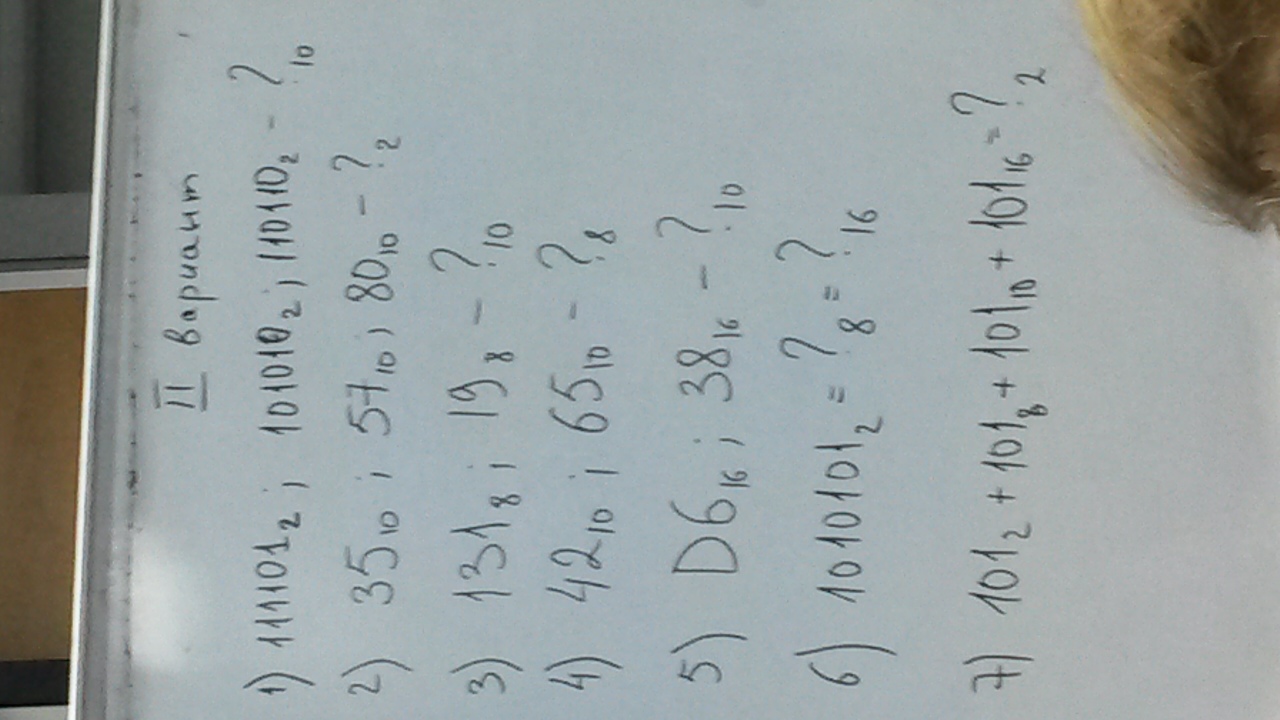 II вариант
1) 111101₂; 101010₂; 110110₂ - ?₁₀
2) 35₁₀; 57₁₀; 80₁₀ - ?₂
3) 131₈; 19₈ - ?₁₀
4) 42₁₀; 65₁₀ - ?₈
5) D6₁₆; 38₁₆ - ?₁₀
6) 1010101₂ = ?₈ = ?₁₆
7) 101₂ + 101₈ + 101₁₀ + 101₁₆ = ?₂